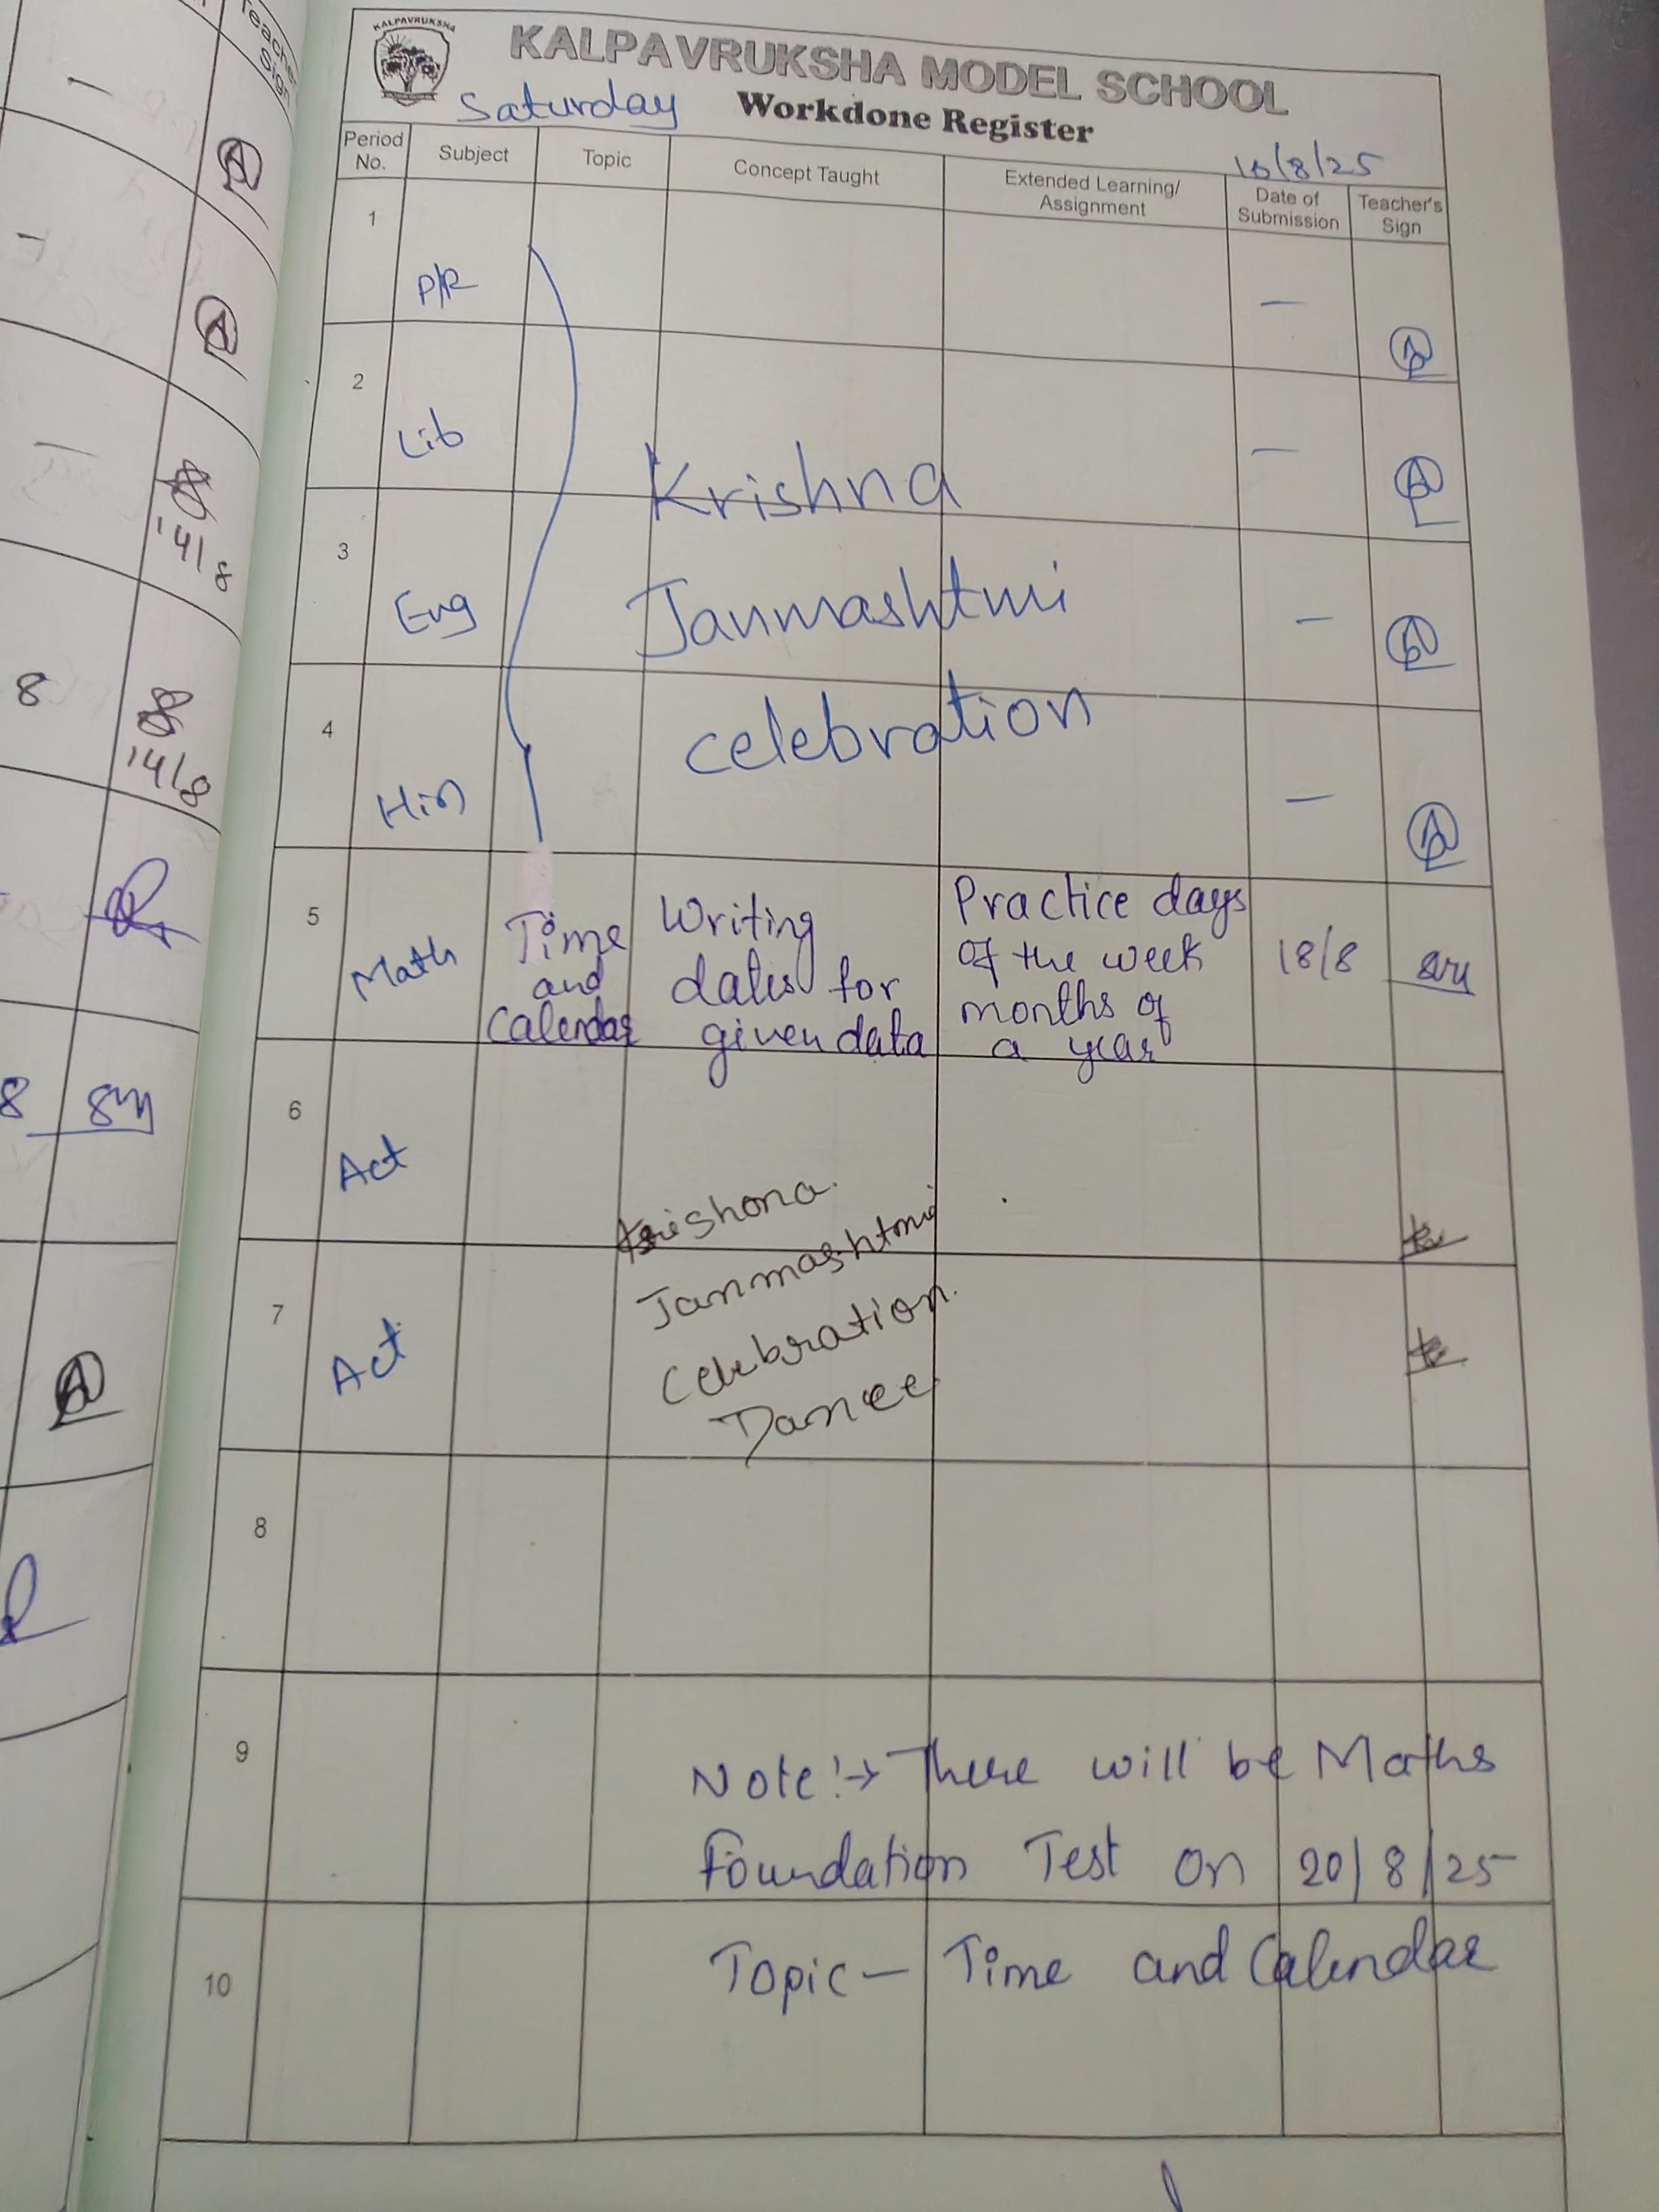 KALPAVRUKSHA
KALPAVRUKSHA MODEL SCHOOL
Saturday Workdone Register
16/8/25
Period No. Subject Topic Concept Taught Extended Learning/ Assignment Date of Submission Teacher's Sign
1 P/R —
2 Lib —
Krishna
3 Eng —
Janmashtmi
4 Hin —
celebration
5 Math
Time
and
Calendar
Writing
dates for
given data
Practice days
of the week
months of
a year
18/8
6 Act
Krishona
Janmashtmi
7 Act
Celebration.
Dance
8
9
Note:→ There will be Maths
Foundation Test on 20/8/25
10
Topic — Time and Calendar
Teacher Sign
14/8
8
14/8
8